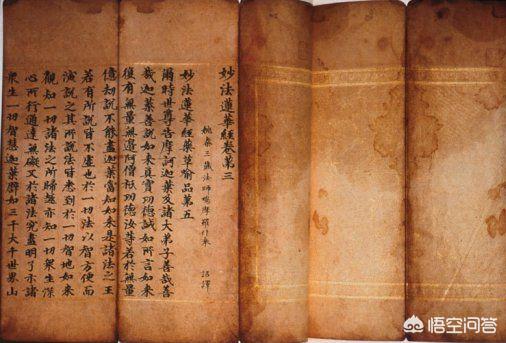 妙法蓮華經卷第三
姚秦三藏法師鳩摩羅什奉 詔譯
妙法蓮華經藥草喻品第五
爾時世尊告摩訶迦葉及諸大弟子善哉善
哉迦葉善說如來真實功德誠如所言如來
復有無量無邊阿僧祇功德汝等若於無量
億劫說不能盡迦葉當知如來是諸法之王
若有所說皆不虛也於一切法以智方便而
演說之其所說法皆悉到於一切智地如來
觀知一切諸法之所歸趣亦知一切眾生深
心所行通達無礙又於諸法究盡明了示諸
眾生一切智慧迦葉譬如三千大千世界山
悟空问答